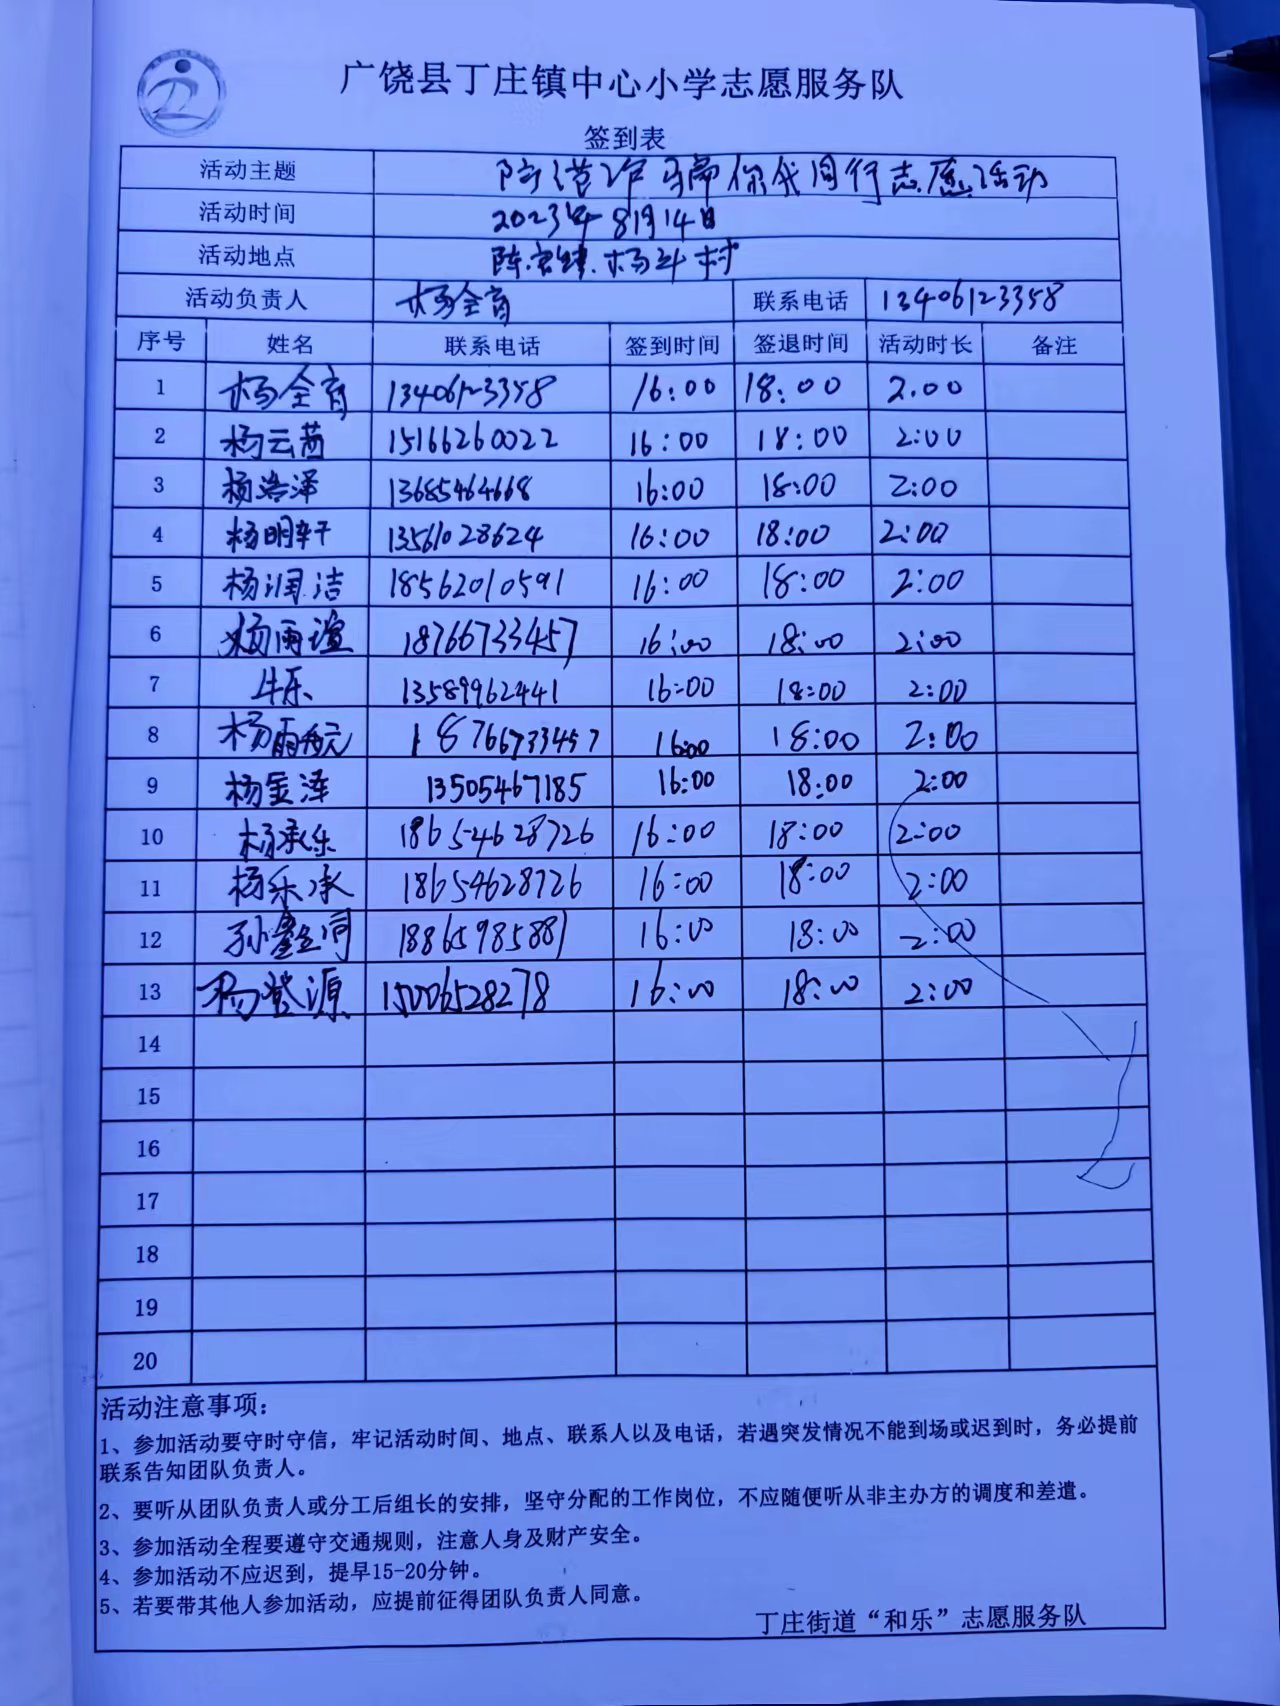 广饶县丁庄镇中心小学志愿服务队
签到表
活动主题 防 诈骗你我同行志愿活动
活动时间 2023年8月14日
活动地点 陈官镇杨斗村
活动负责人 杨全育 联系电话 13406123358
序号 姓名 联系电话 签到时间 签退时间 活动时长 备注
1 杨全育 13406123358 16:00 18:00 2.00
2 杨云茜 15166260022 16:00 18:00 2:00
3 杨浩泽 13685464668 16:00 18:00 2:00
4 杨明轩 13561028624 16:00 18:00 2:00
5 杨润洁 18562010591 16:00 18:00 2:00
6 杨雨谊 18766733457 16:00 18:00 2:00
7 牛乐 13589962441 16:00 18:00 2:00
8 杨雨 18766733457 16:00 18:00 2:00
9 杨金泽 13505467185 16:00 18:00 2:00
10 杨承乐 18654628726 16:00 18:00 2:00
11 杨乐承 18654628726 16:00 18:00 2:00
12 孙鑫同 18865985881 16:00 18:00 2:00
13 杨登源 15006528278 16:00 18:00 2:00
14
15
16
17
18
19
20
活动注意事项：
1、参加活动要守时守信，牢记活动时间、地点、联系人以及电话，若遇突发情况不能到场或迟到时，务必提前
联系告知团队负责人。
2、要听从团队负责人或分工后组长的安排，坚守分配的工作岗位，不应随便听从非主办方的调度和差遣。
3、参加活动全程要遵守交通规则，注意人身及财产安全。
4、参加活动不应迟到，提早15-20分钟。
5、若要带其他人参加活动，应提前征得团队负责人同意。
丁庄街道“和乐”志愿服务队